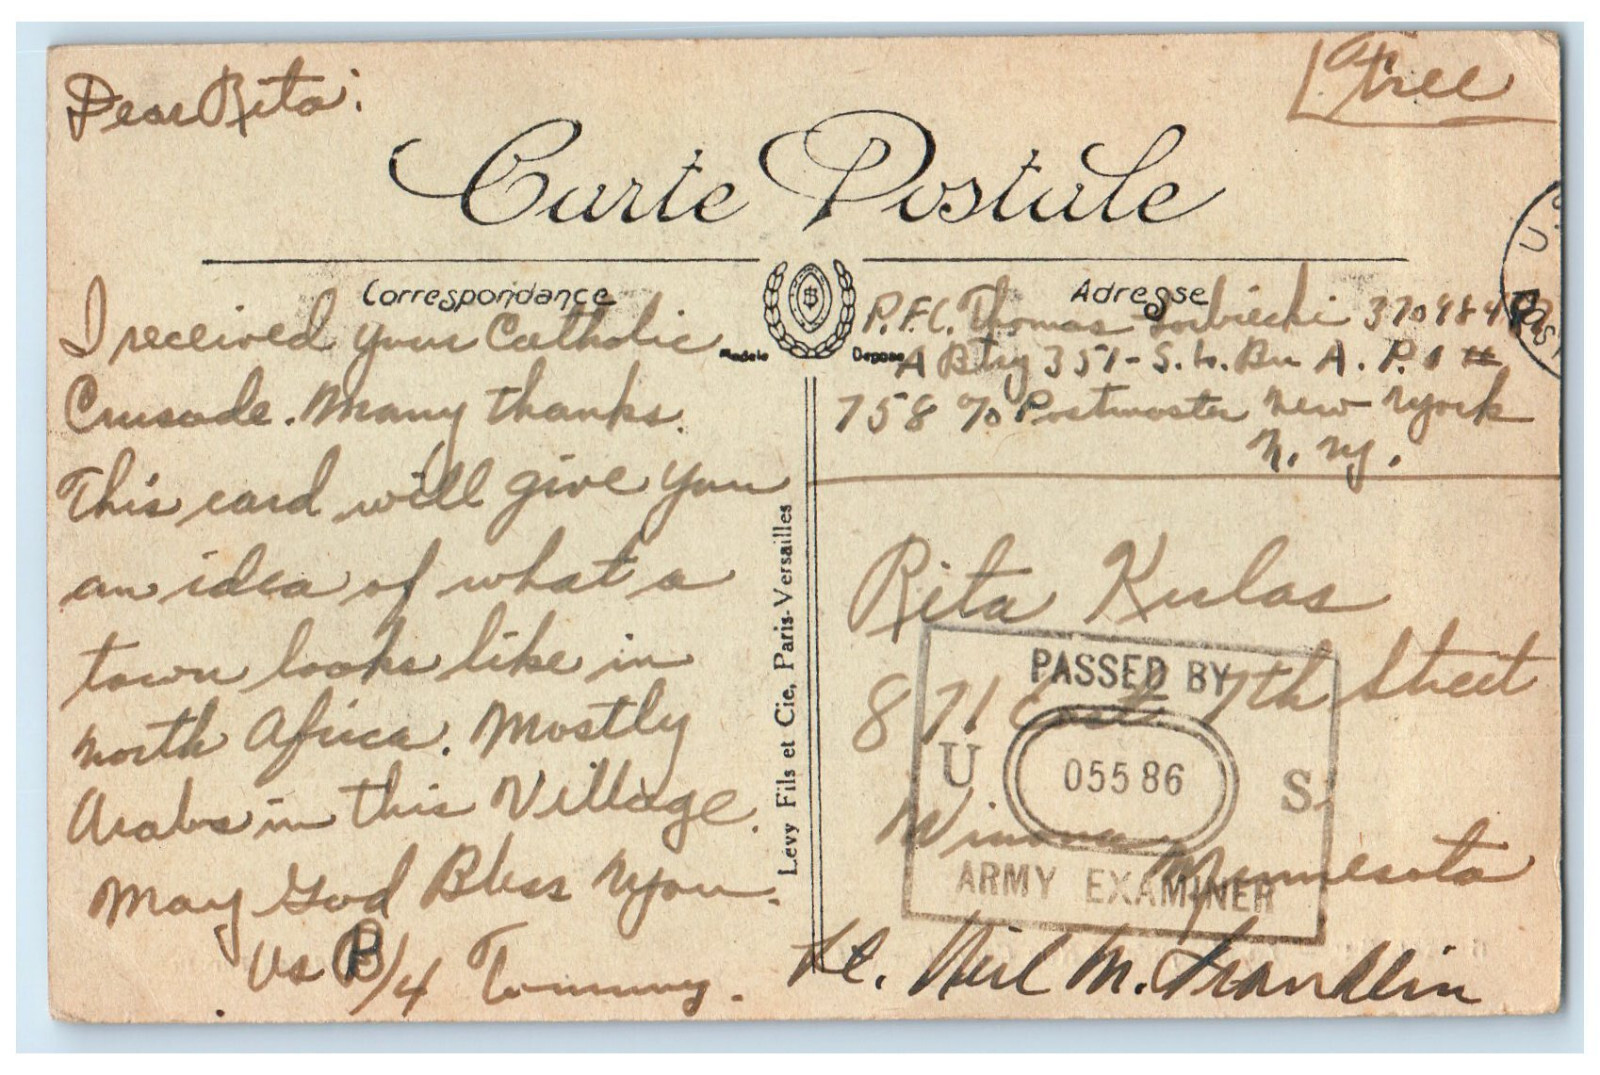 Dear Rita:
Free
Carte Postale
Correspondance
Adresse
Modele Depose
I received your Catholic
Crusade. Many thanks.
This card will give you
an idea of what a
town looks like in
North Africa. Mostly
Arabs in this Village.
May God Bless You.
Us B/4 Tommy.
Levy Fils et Cie, Paris-Versailles
P.F.C. Thomas
A Btry 351- S.L. Bn A.P.O #
758 % Postmaster New York
N.Y.
Rita Kulas
871 East 7th Street
Winona
Minnesota
PASSED BY
U 05586 S
ARMY EXAMINER
Lt. Neil M. Franklin